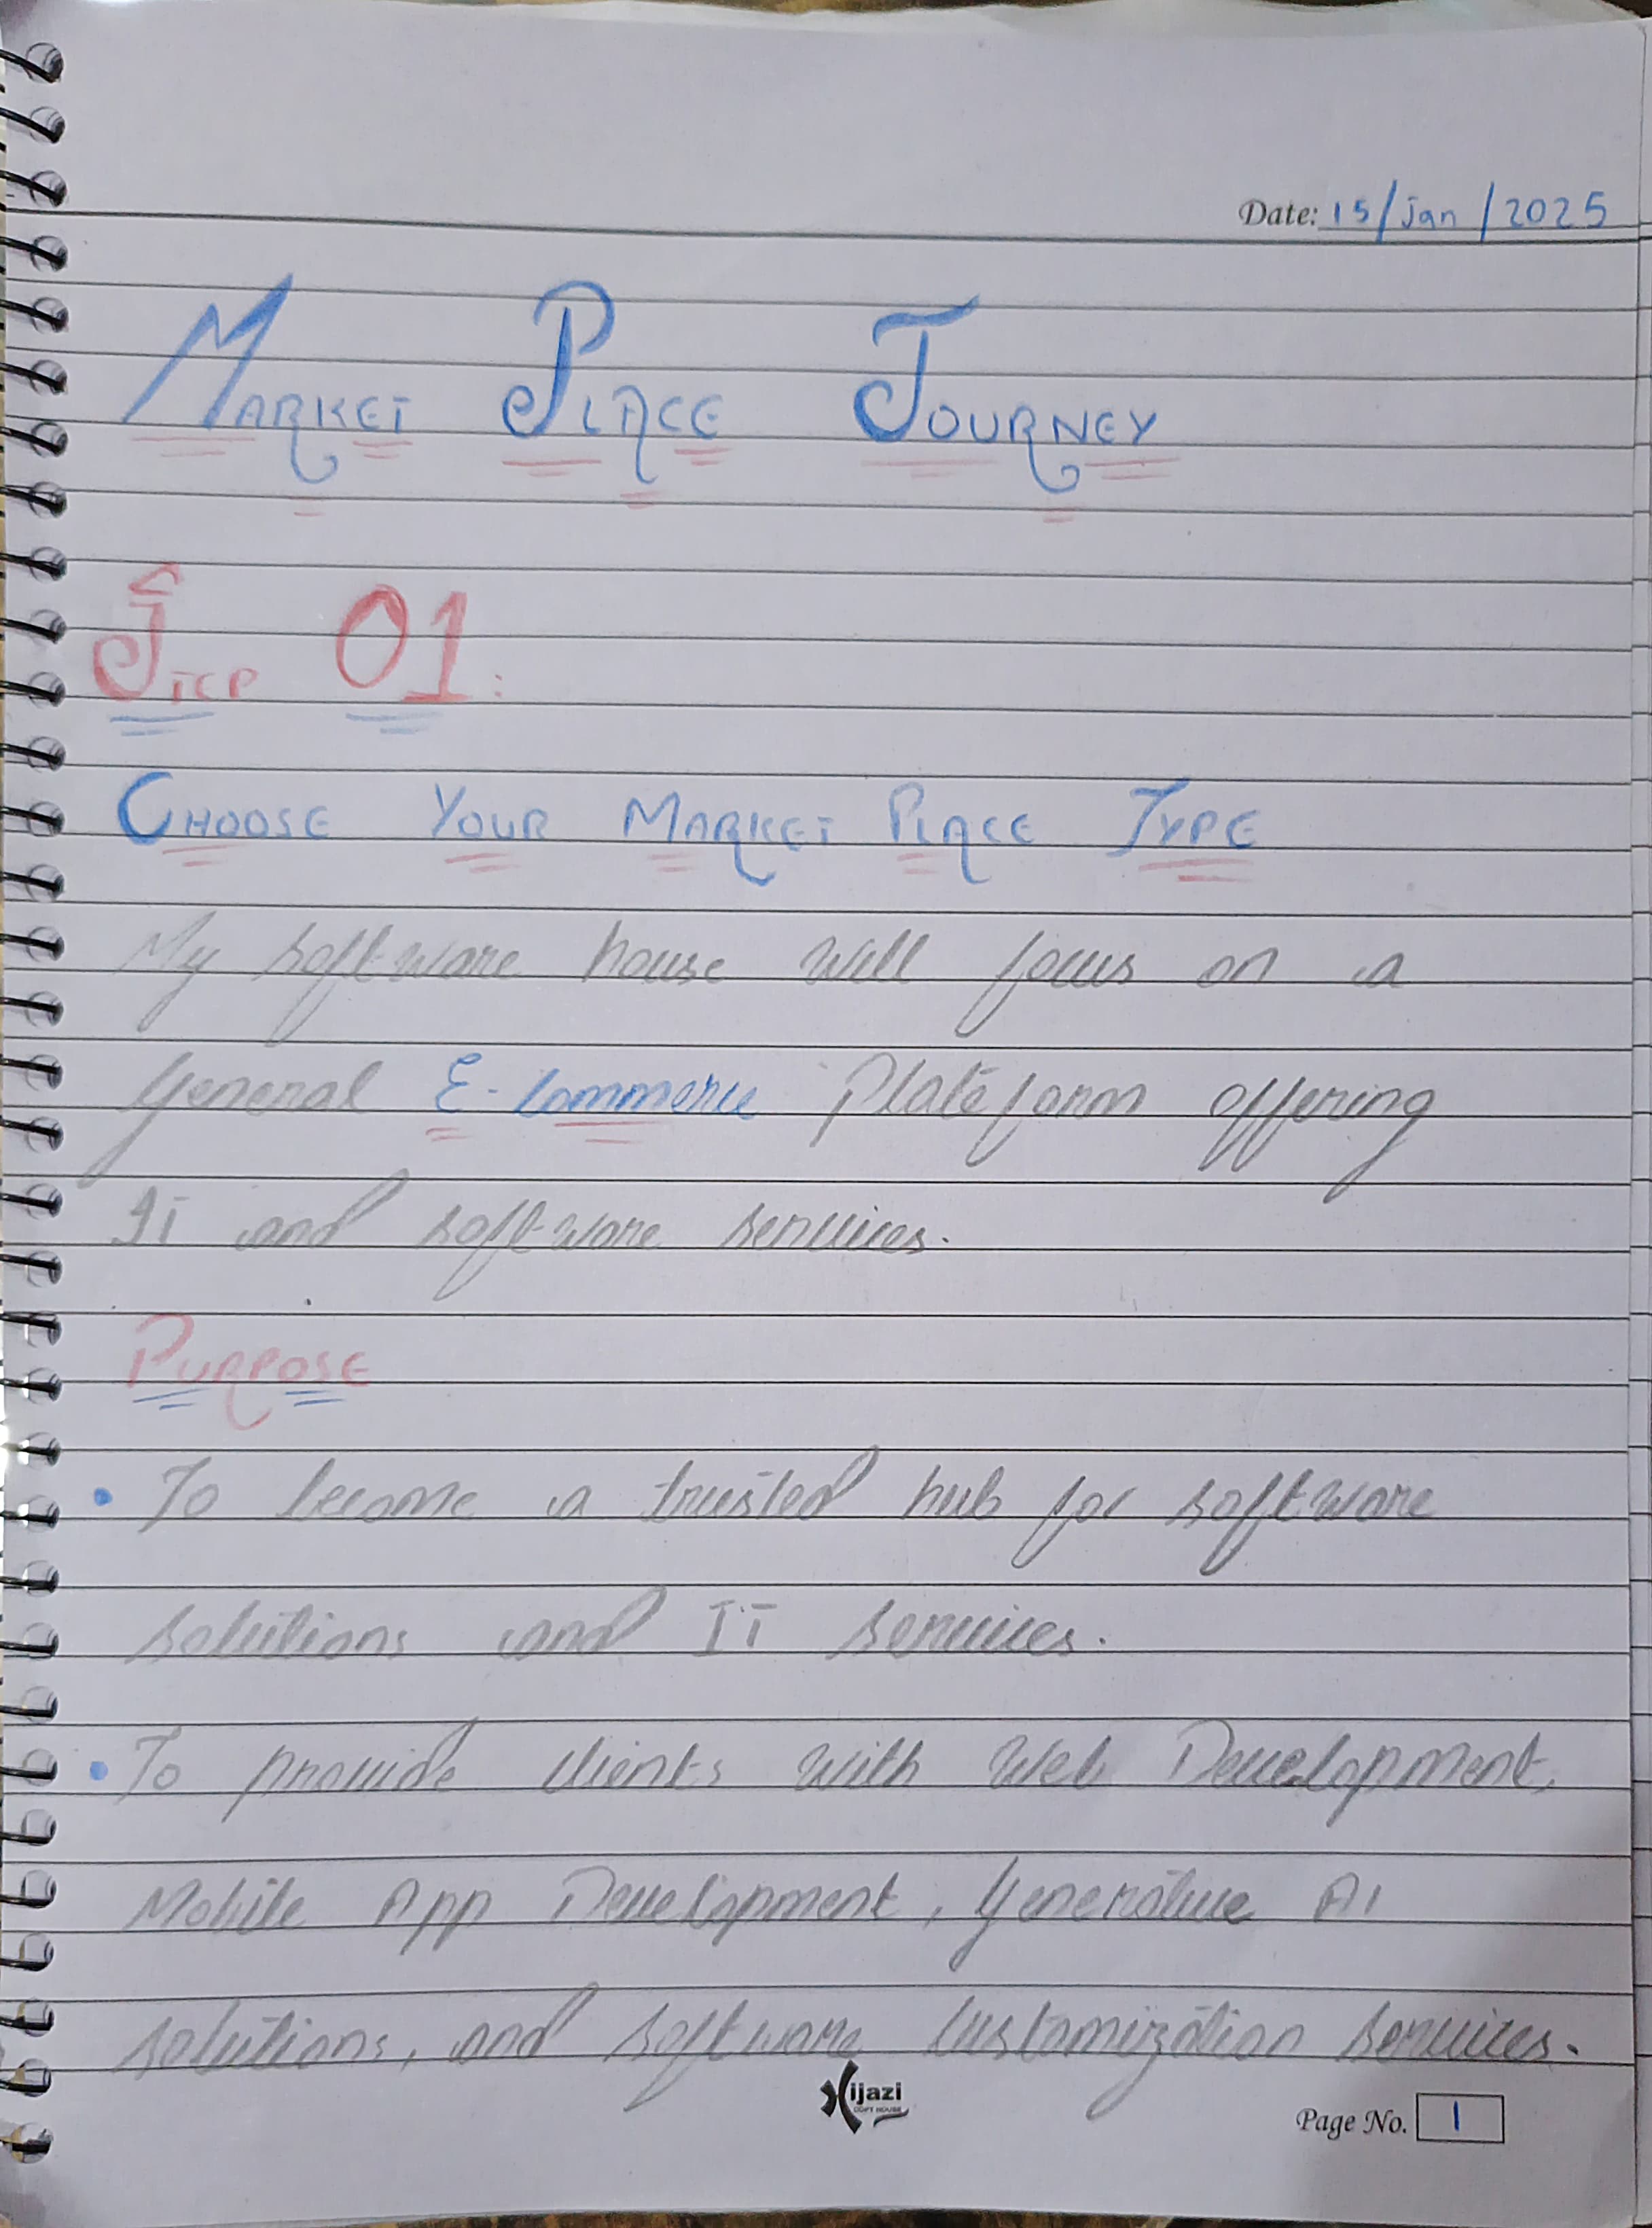 Date: 15/Jan/2025
MARKET PLACE JOURNEY
STEP 01:
CHOOSE YOUR MARKET PLACE TYPE
My software house will focus on a
General E-Commerce Plateform offering
IT and software services.
PURPOSE
• To become a trusted hub for software
solutions and IT services.
• To provide clients with Web Development,
Mobile App Development, Generative AI
solutions, and software customization services.
Hijazi
Page No. 1